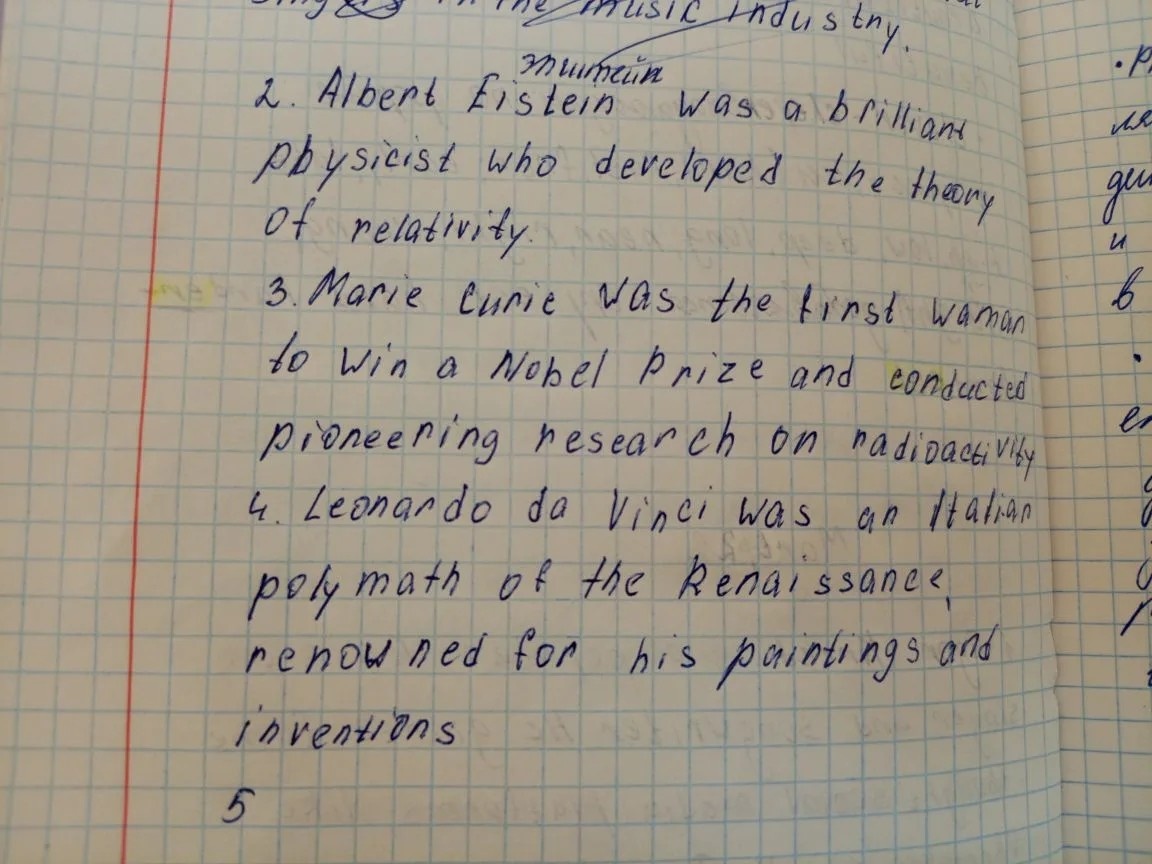 in the music industry.
эпштейн
2. Albert Eistein was a brilliant
physicist who developed the theory
of relativity.
3. Marie Curie was the first waman
to win a Nobel Prize and conducted
pioneering research on radioactivity
4. Leonardo da Vinci was an Italian
polymath of the Renaissance,
renowned for his paintings and
inventions
5
и
в